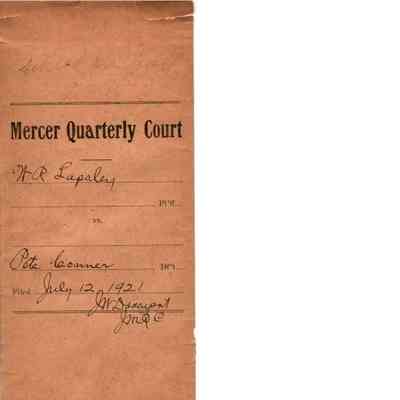 Mercer Quarterly Court
W. R. Lapsley
Plff.
vs.
Pete Conner Deft.
Filed July 12, 1921
JW Davenport
JMQC